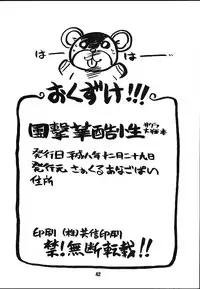 はー はー
おくずけ!!!
国撃華酷1生
発行日 平成八年十二月二十九日
発行元 さぁくるあなごぱい
住所
印刷 (株)英信印刷
禁!無断転載!!
62